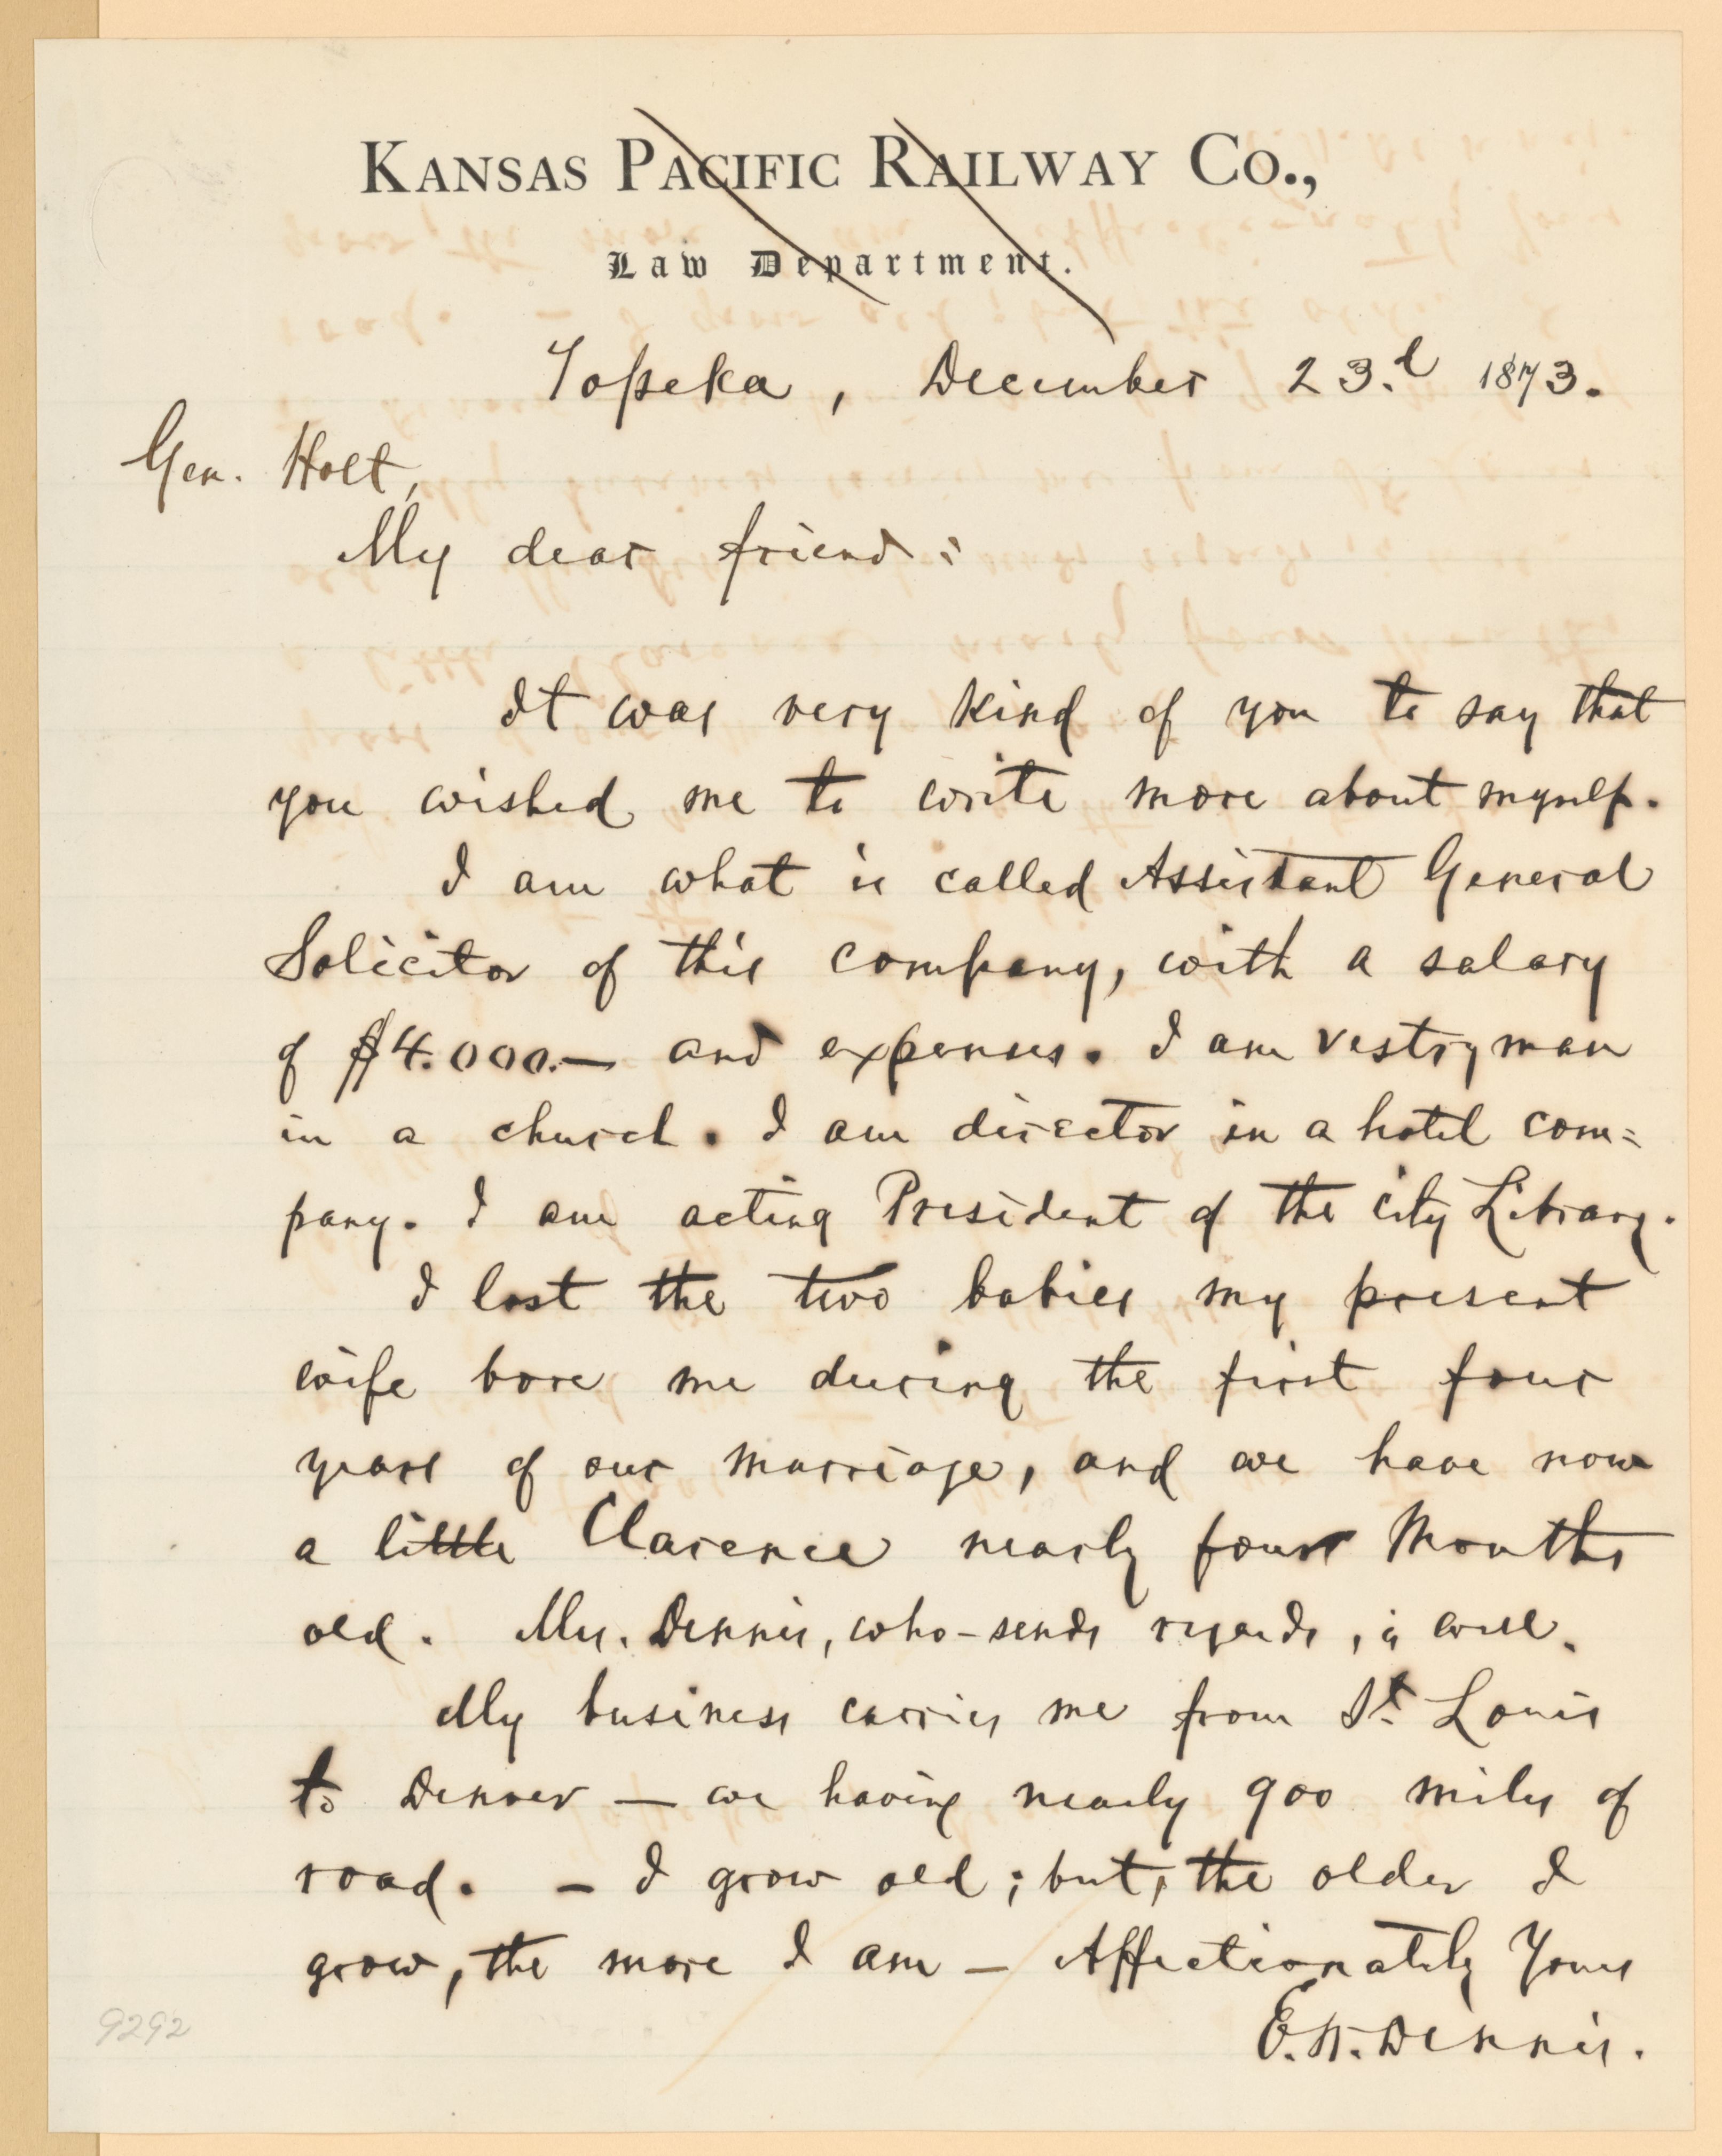 KANSAS PACIFIC RAILWAY CO.,
Law Department.
Topeka, December 23.d 1873.
Gen. Holt,
My dear friend:
It was very kind of you to say that
you wished me to write more about myself.
I am what is called Assistant General
Solicitor of this company, with a salary
of $4.000.— and expenses. I am vestryman
in a church. I am director in a hotel com=
pany. I am acting President of the city Library.
I lost the two babies my present
wife bore me during the first four
years of our marriage, and we have now
a little Clarence nearly four months
old. Mrs. Dennis, who-sends regards, is well.
My business carries me from St. Louis
to Denver — we having nearly 900 miles of
road. — I grow old; but, the older I
grow, the more I am — Affectionately Yours
E.W. Dennis.
9292